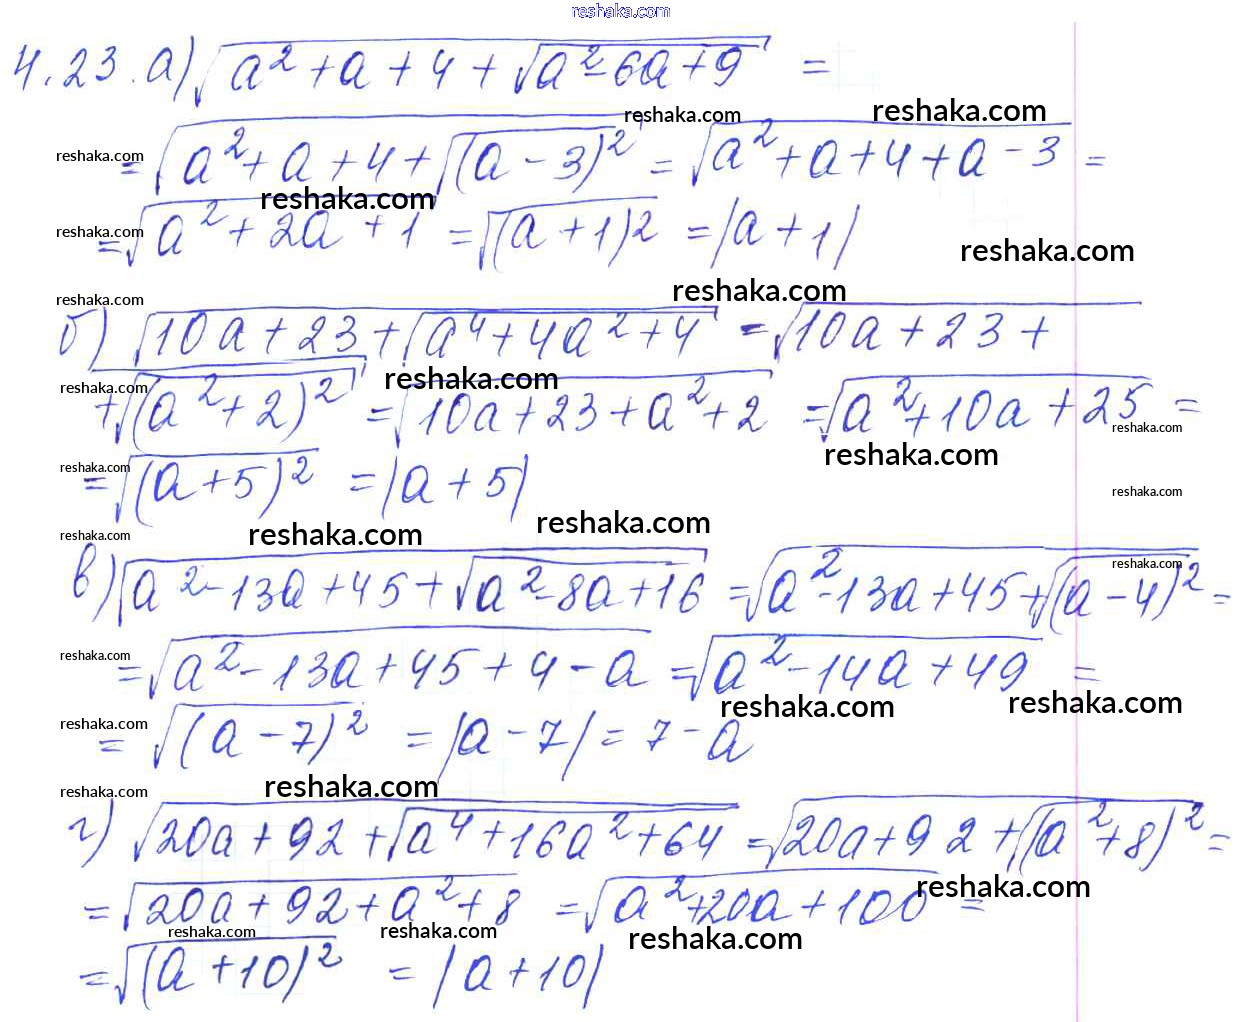 reshaka.com
4.23. а) √(a² + a + 4 + √(a² - 6a + 9)) =
reshaka.com reshaka.com
reshaka.com = √(a² + a + 4 + √((a - 3)²)) = √(a² + a + 4 + a - 3) =
reshaka.com
reshaka.com = √(a² + 2a + 1) = √((a + 1)²) = |a + 1|
reshaka.com
reshaka.com reshaka.com
б) √(10a + 23 + √(a⁴ + 4a² + 4)) = √(10a + 23 +
reshaka.com reshaka.com
+ √((a² + 2)²)) = √(10a + 23 + a² + 2) = √(a² + 10a + 25) =
reshaka.com
reshaka.com reshaka.com
= √((a + 5)²) = |a + 5|
reshaka.com
reshaka.com reshaka.com reshaka.com
в) √(a² - 13a + 45 + √(a² - 8a + 16)) = √(a² - 13a + 45 + √((a - 4)²)) =
reshaka.com
reshaka.com = √(a² - 13a + 45 + 4 - a) = √(a² - 14a + 49) =
reshaka.com reshaka.com
reshaka.com = √((a - 7)²) = |a - 7| = 7 - a
reshaka.com reshaka.com
г) √(20a + 92 + √(a⁴ + 16a² + 64)) = √(20a + 92 + √((a² + 8)²)) =
reshaka.com
= √(20a + 92 + a² + 8) = √(a² + 20a + 100) =
reshaka.com reshaka.com reshaka.com
= √((a + 10)²) = |a + 10|